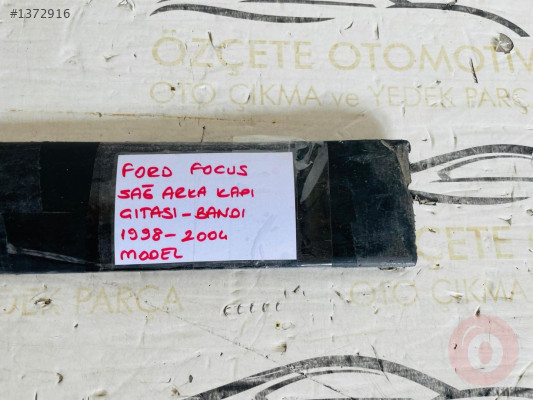 #1372916
ÖZÇETE OTOMOTİV
OTO ÇIKMA ve YEDEK PARÇ
FORD FOCUS
SAĞ ARKA KAPI
GITASI-BANDI
1998-2004
MODEL
ÖZÇETE
VE YEDEK PARÇA
OTO ÇIKMA